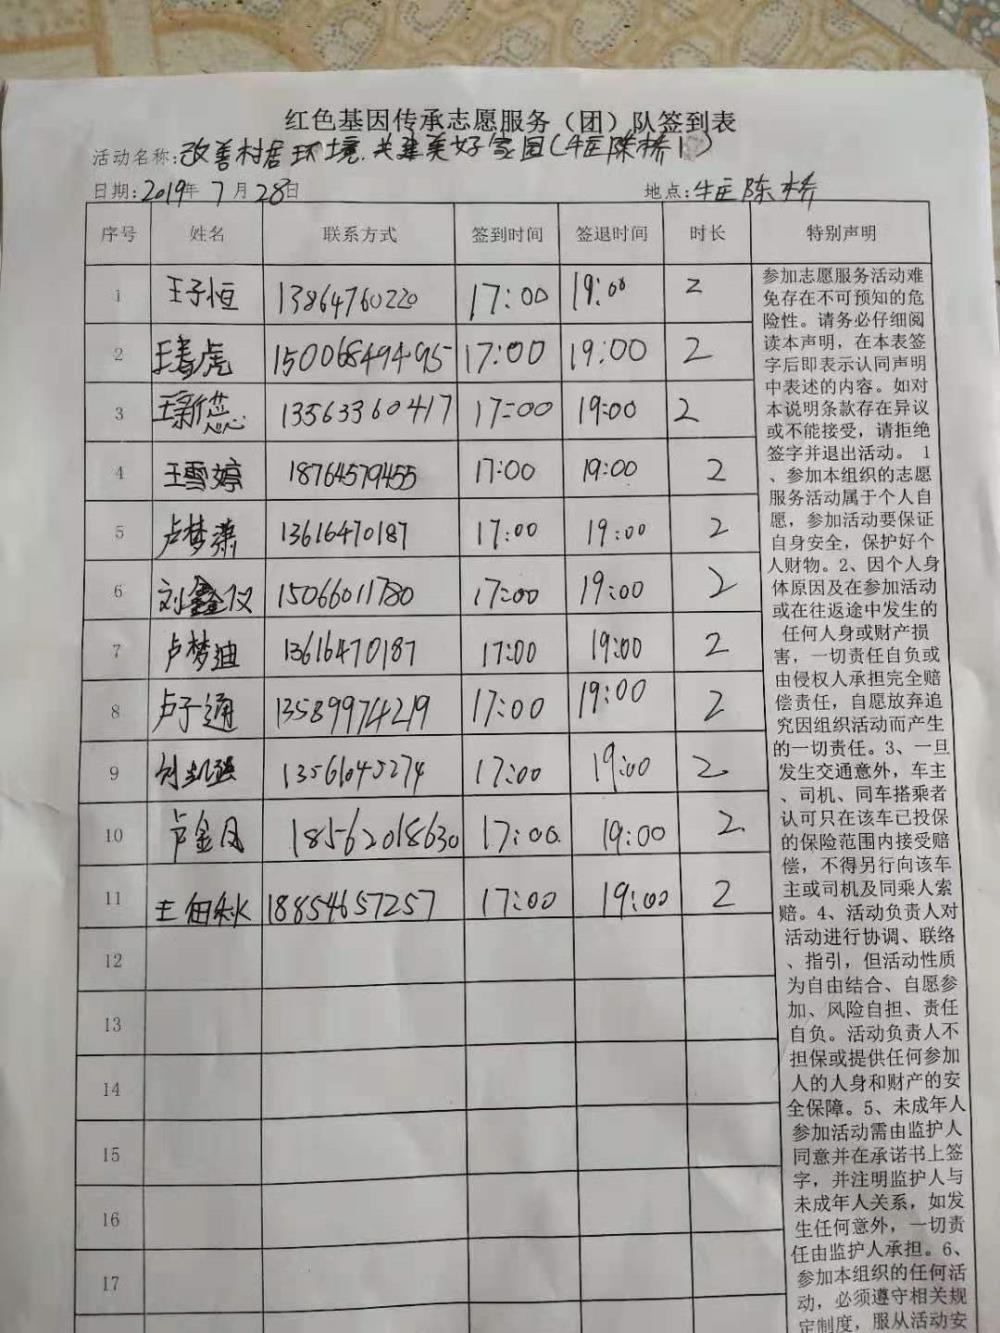 红色基因传承志愿服务（团）队签到表
活动名称:改善村居环境.共建美好家园(牛庄陈桥1)
日期:2019年 7月28日 地点:牛庄陈桥
序号 姓名 联系方式 签到时间 签退时间 时长 特别声明
1 王子恒 13864760220 17:00 19:00 2
2 王春虎 15006849495 17:00 19:00 2
3 王新蕊 13563360417 17:00 19:00 2
4 王雪婷 18764579455 17:00 19:00 2
5 卢梦潇 13616470187 17:00 19:00 2
6 刘鑫仪 15066011780 17:00 19:00 2
7 卢梦迪 13616470187 17:00 19:00 2
8 卢子通 13589974219 17:00 19:00 2
9 刘凯强 13561045274 17:00 19:00 2
10 卢金月 18562018630 17:00. 19:00 2.
11 王佃秋 18854657257 17:00 19:00 2
12
13
14
15
16
17
参加志愿服务活动难
免存在不可预知的危
险性。请务必仔细阅
读本声明，在本表签
字后即表示认同声明
中表述的内容。如对
本说明条款存在异议
或不能接受，请拒绝
签字并退出活动。 1
、参加本组织的志愿
服务活动属于个人自
愿，参加活动要保证
自身安全，保护好个
人财物。2、因个人身
体原因及在参加活动
或在往返途中发生的
任何人身或财产损
害，一切责任自负或
由侵权人承担完全赔
偿责任，自愿放弃追
究因组织活动而产生
的一切责任。3、一旦
发生交通意外，车主
、司机、同车搭乘者
认可只在该车已投保
的保险范围内接受赔
偿，不得另行向该车
主或司机及同乘人索
赔。4、活动负责人对
活动进行协调、联络
、指引，但活动性质
为自由结合、自愿参
加、风险自担、责任
自负。活动负责人不
担保或提供任何参加
人的人身和财产的安
全保障。5、未成年人
参加活动需由监护人
同意并在承诺书上签
字，并注明监护人与
未成年人关系，如发
生任何意外，一切责
任由监护人承担。6、
参加本组织的任何活
动，必须遵守相关规
定制度，服从活动安